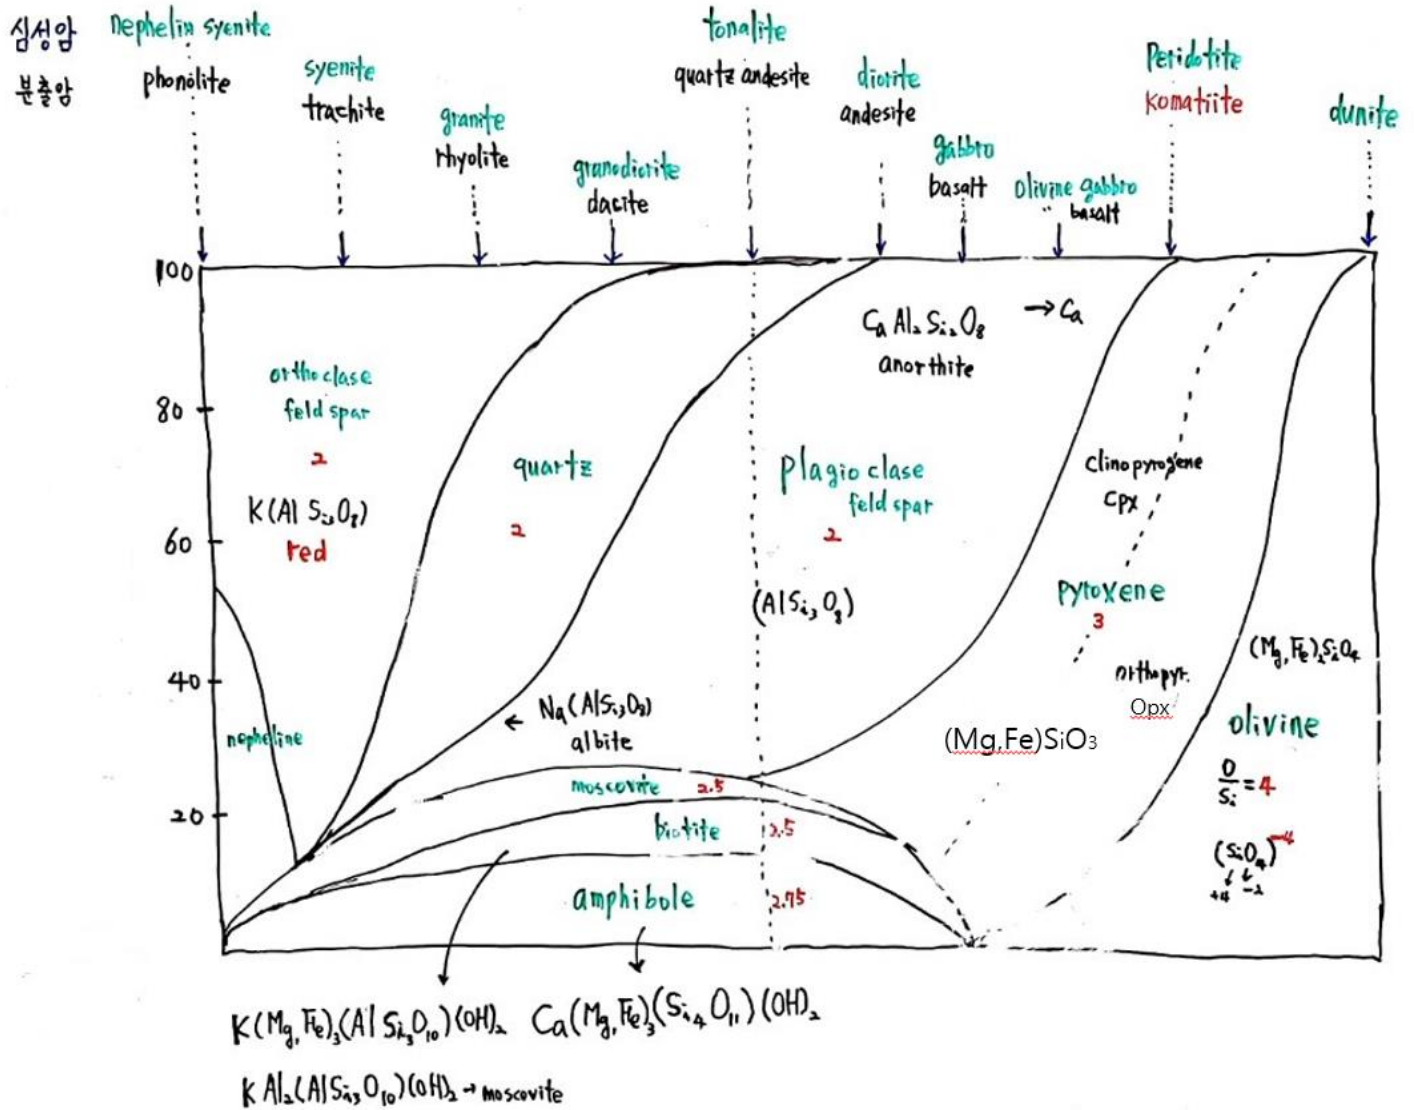 심성암 nephelin syenite
분출암 phonolite
syenite
trachite
granite
rhyolite
granodiorite
dacite
tonalite
quartz andesite
diorite
andesite
gabbro
basalt
olivine gabbro
" basalt
Peridotite
komatiite
dunite
100
80
60
40
20
orthoclase
feld spar
2
K(AlSi₃O₈)
red
nepheline
quartz
2
← Na(AlSi₃O₈)
albite
CaAl₂Si₂O₈ → Ca
anorthite
plagioclase
feld spar
2
(AlSi₃O₈)
Clinopyrogene
CPX
pyroxene
3
orthopyr.
Opx
(Mg,Fe)SiO₃
(Mg,Fe)₂SiO₄
olivine
O/Si = 4
(SiO₄)⁻⁴
+4 -2
moscovite 2.5
biotite 2.5
amphibole 2.75
K(Mg,Fe)₃(AlSi₃O₁₀)(OH)₂ Ca(Mg,Fe)₃(Si₄O₁₁)(OH)₂
KAl₂(AlSi₃O₁₀)(OH)₂ → moscovite